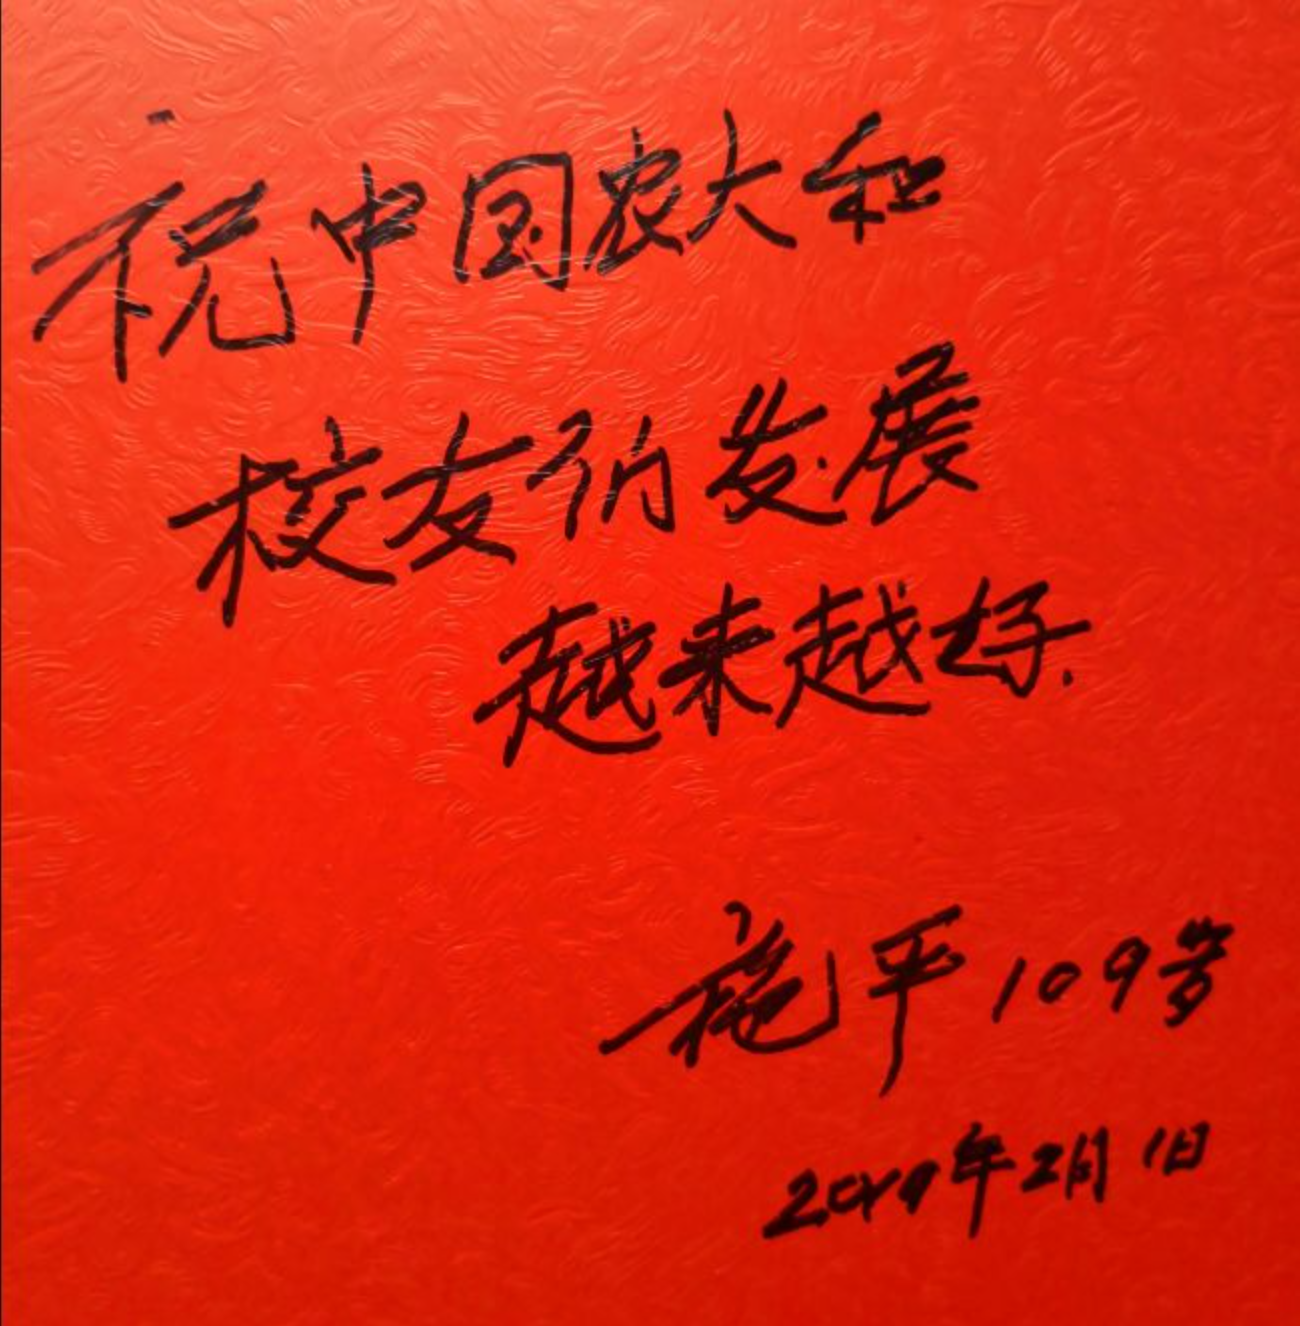 祝中国农大和
校友们发展
越来越好.
施平109岁
2019年2月1日